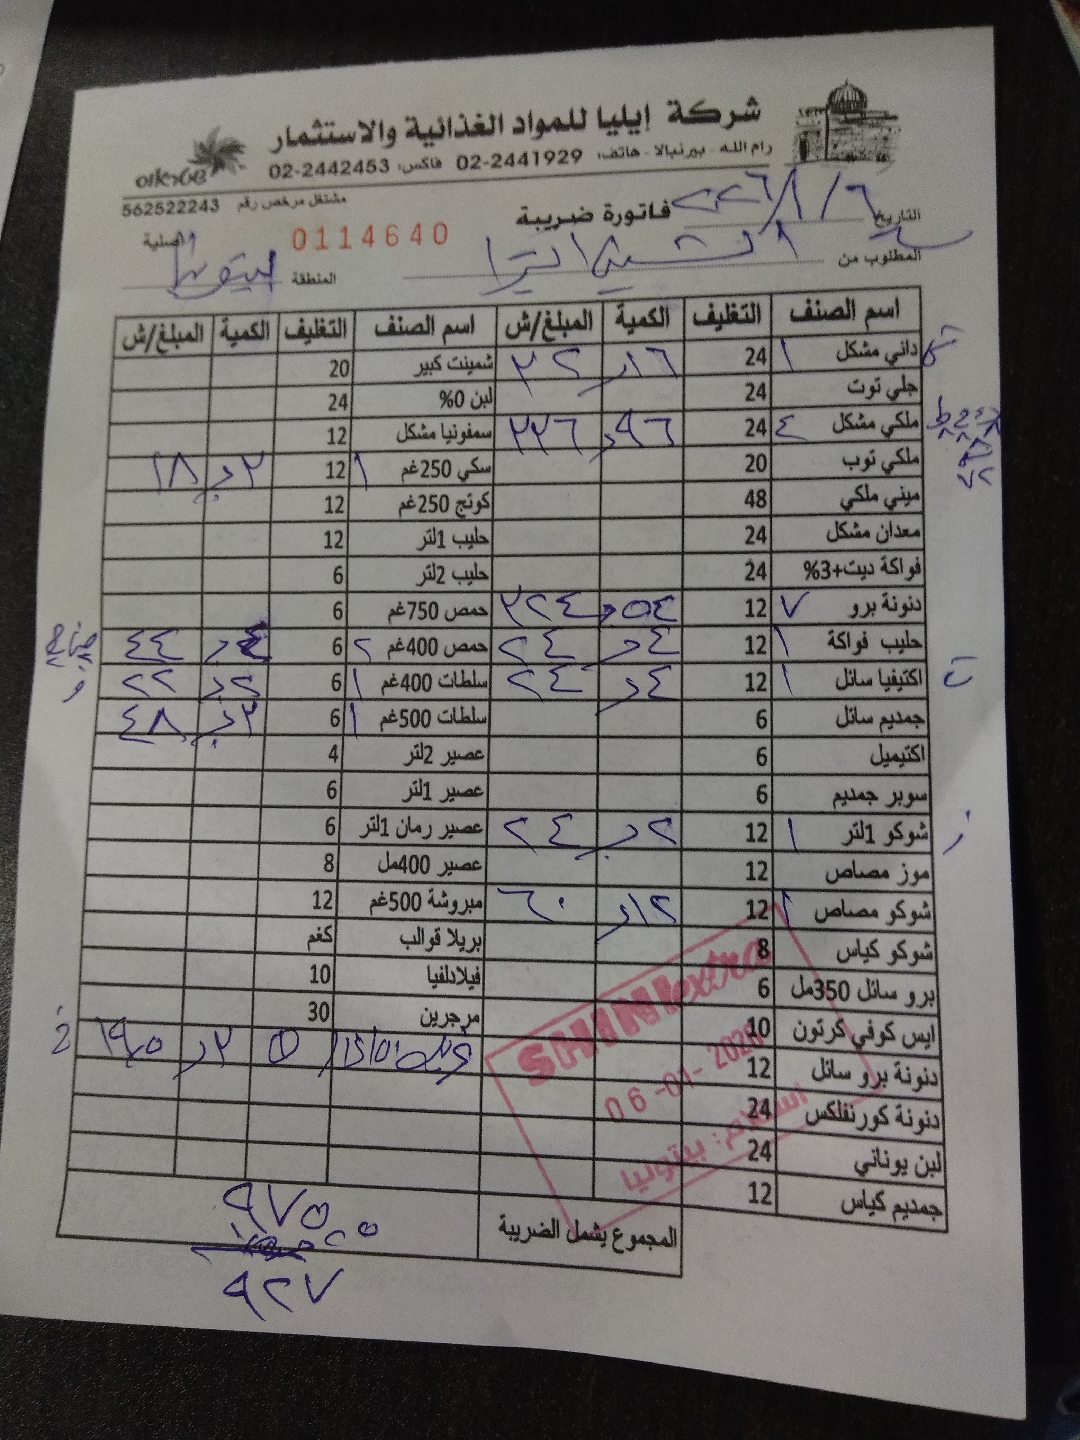 شركة إيليا للمواد الغذائية والاستثمار
رام الله - بيرنبالا - هاتف: 02-2441929 فاكس: 02-2442453
مشتغل مرخص رقم 562522243
التاريخ ٢٠٢٦/١/٦ فاتورة ضريبة
0114640 اصلية
المطلوب من المنطقة بيتونيا
اسم الصنف التغليف الكمية المبلغ/ش اسم الصنف التغليف الكمية المبلغ/ش
داني مشكل ١ 24 ٣٢ شمينت كبير 20
جلي توت 24 لبن 0% 24
ملكي مشكل ٤ 24 ٩٦ ٣٣٦ سمفونيا مشكل 12
ملكي توب 20 سكي 250غم ١ 12 ١٨
ميني ملكي 48 كوتج 250غم 12
معدان مشكل 24 حليب 1لتر 12
فواكة ديت+3% 24 حليب 2لتر 6
دنونة برو ٧ 12 حمص 750غم 6
حليب فواكة ١ 12 ٢٤ حمص 400غم ٢ 6 ٤٤
اكتيفيا سائل ١ 12 ٢٤ سلطات 400غم ١ 6 ٢٢
جمديم سائل 6 سلطات 500غم ١ 6 ٤٨
اكتيميل 6 عصير 2لتر 4
سوبر جمديم 6 عصير 1لتر 6
شوكو 1لتر ١ 12 ٢٤ عصير رمان 1لتر 6
موز مصاص 12 عصير 400مل 8
شوكو مصاص ١ 12 ١٢ ٦٠ مبروشة 500غم 12
شوكو كياس 8 بريلا قوالب كغم
برو سائل 350مل 6 فيلادلفيا 10
ايس كوفي كرتون 10 مرجرين 30
دنونة برو سائل 12
دنونة كورنفلكس 24
لبن يوناني 24
جمديم كياس 12
المجموع يشمل الضريبة ٩٧٥
٩٢٧
SHINI extra
06 -01- 2026
استلام: بيتونيا